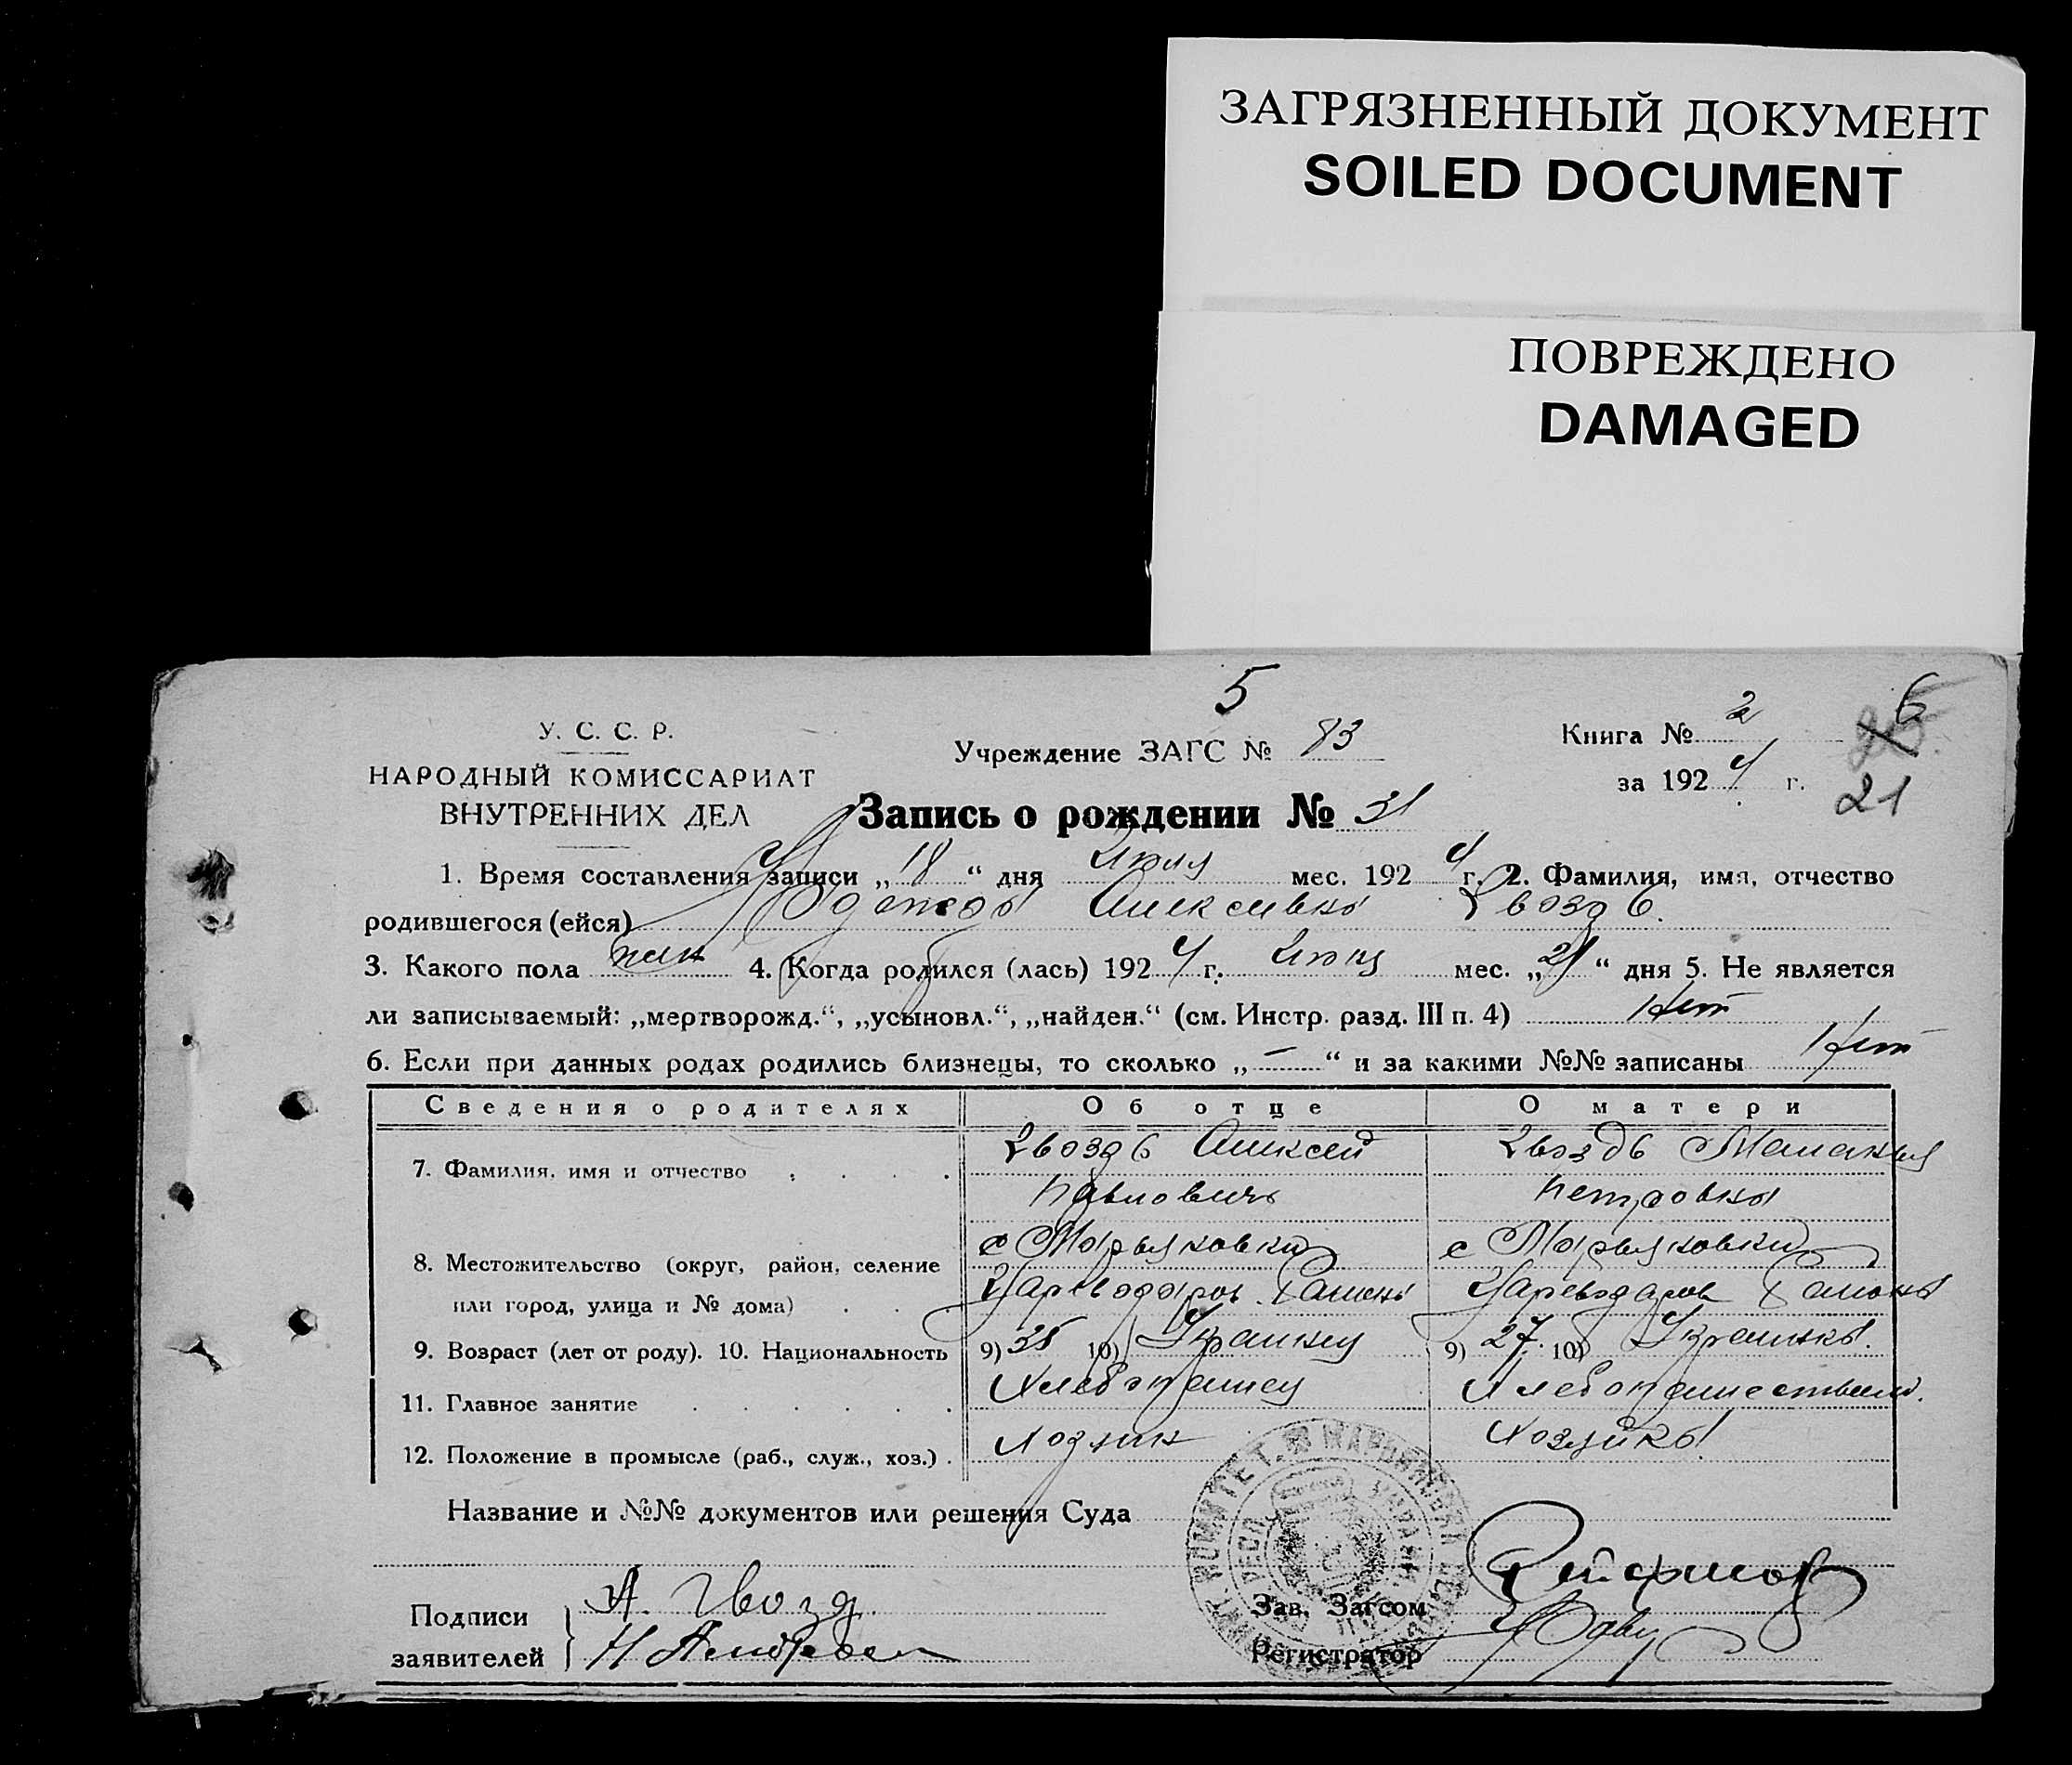 ЗАГРЯЗНЕННЫЙ ДОКУМЕНТ
SOILED DOCUMENT
ПОВРЕЖДЕНО
DAMAGED
5
6
У. С. С. Р.
Учреждение ЗАГС № 83
Книга № 2
НАРОДНЫЙ КОМИССАРИАТ
ВНУТРЕННИХ ДЕЛ
за 1924 г.
21
Запись о рождении № 31
1. Время составления записи „18“ дня Июля мес. 1924 г. 2. Фамилия, имя, отчество
родившегося (ейся) Алексеевна Гвоздь.
3. Какого пола жен 4. Когда родился (лась) 1924 г. мес. „21“ дня 5. Не является
ли записываемый: „мертворожд.“, „усыновл.“, „найден.“ (см. Инстр. разд. III п. 4) Нет
6. Если при данных родах родились близнецы, то сколько „—“ и за какими №№ записаны Нет
Сведения о родителях Об отце О матери
7. Фамилия, имя и отчество Гвоздь Алексей Гвоздь Маланья
Павловичь Петровна
8. Местожительство (округ, район, селение с Марьяновки с Марьяновки
или город, улица и № дома) Цареводаров Цареводаров
9. Возраст (лет от роду). 10. Национальность 9) 35 10) Украинец 9) 27 10) Украинка.
11. Главное занятие Хлебопашец
12. Положение в промысле (раб., служ., хоз.) Хозяин Хозяйка
Название и №№ документов или решения Суда
Подписи А. Гвозд
заявителей Н
Зав. Загсом
Регистратор